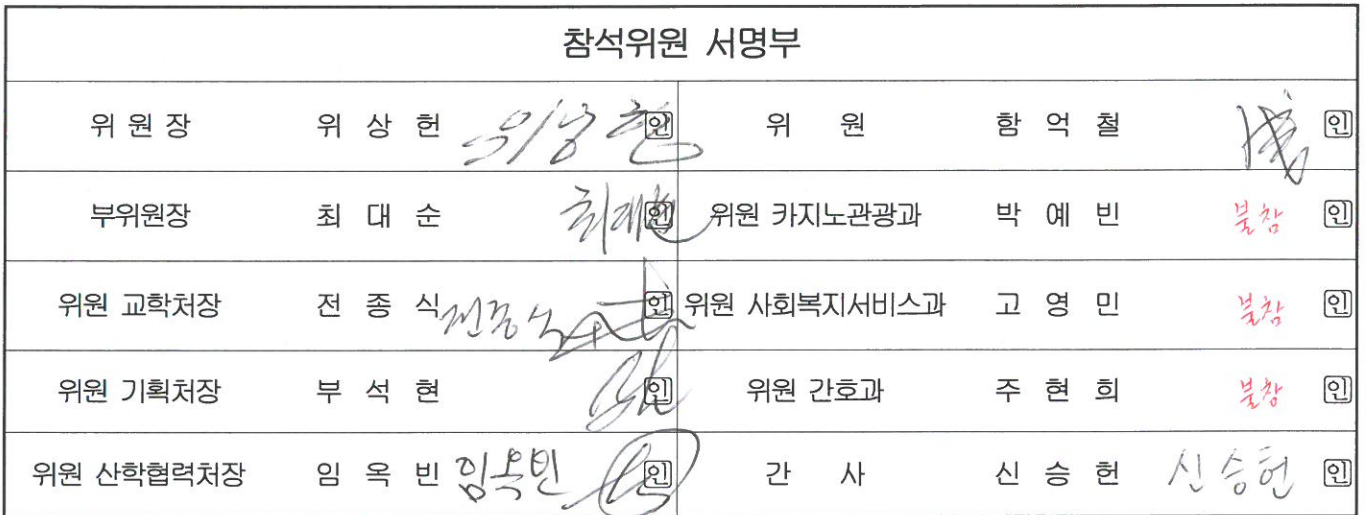 참석위원 서명부
위 원 장 위 상 헌 위상헌 인 위 원 함 억 철 인
부위원장 최 대 순 최대순 인 위원 카지노관광과 박 예 빈 불참 인
위원 교학처장 전 종 식 전종식 인 위원 사회복지서비스과 고 영 민 불참 인
위원 기획처장 부 석 현 인 위원 간호과 주 현 희 불참 인
위원 산학협력처장 임 옥 빈 임옥빈 인 간 사 신 승 헌 신승헌 인